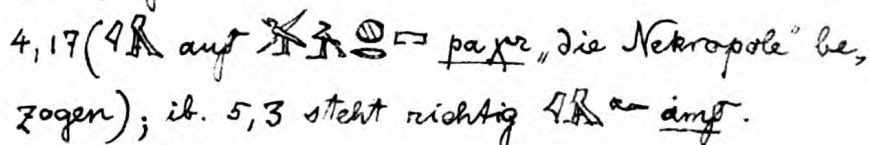 4,17 (𓇋𓅓 auf 𓅮𓄿𓐍𓂋𓉐 pa χr „die Nekropole“ be-
zogen); ib. 5,3 steht richtig 𓇋𓅓𓆑 ȧmf.